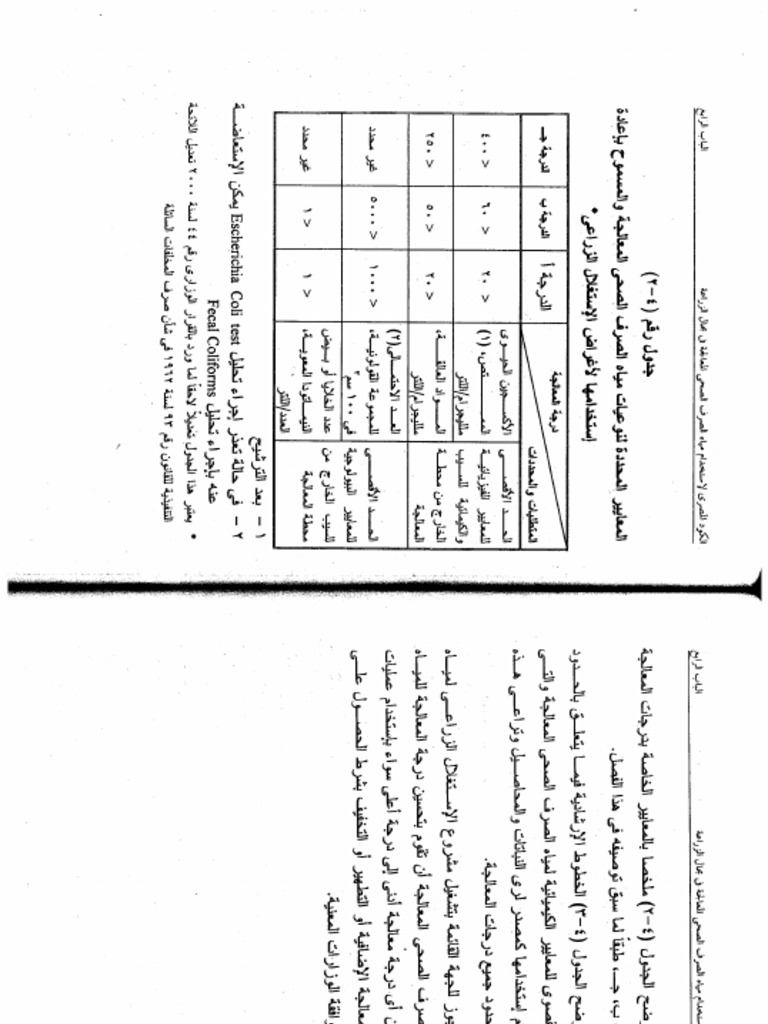 الكود المصرى لاستخدام مياه الصرف الصحى المعالجة فى مجال الزراعة
الباب الرابع
جدول رقم (٤-٢)
المعايير المحددة لنوعيات مياه الصرف الصحى المعالجة والمسموح بإعادة
إستخدامها لأغراض الإستغلال الزراعى*
درجة المعالجة
المتطلبات والمحددات
الدرجة أ
الدرجة ب
الدرجة جـ
الحد الأقصى
للمعايير الفيزيائية
والكيمائية للسيب
الخارج من محطة
المعالجة
الأكسجين الحيوى
الممتص، (١)
ملليجرام/اللتر
< ٢٠
< ٦٠
< ٤٠٠
المواد العالقة،
ملليجرام/اللتر
< ٢٠
< ٥٠
< ٢٥٠
الحد الأقصى
للمعايير البيولوجية
للسيب الخارج من
محطة المعالجة
العدد الاحتمالى(٢)
للمجموعة القولونية،
فى ١٠٠ سم٣
< ١٠٠٠
< ٥٠٠٠
غير محدد
عدد الخلايا أو بيض
النيماتودا المعوية،
العدد/اللتر
< ١
< ١
غير محدد
١ - بعد الترشيح
٢ - فى حالة تعذر إجراء تحليل Escherichia Coli test يمكن الإستعاضة
عنه بإجراء تحليل Fecal Coliforms
* يعتبر هذا الجدول تعديلاً لاحقاً لما ورد بالقرار الوزارى رقم ٤٤ لسنة ٢٠٠٠ تعديل اللائحة
التنفيذية للقانون رقم ٩٣ لسنة ١٩٦٢ فى شأن صرف المخلفات السائلة
مياه الصرف الصحى المعالجة فى مجال الزراعة
الباب الرابع
الجدول (٤-٢) ملخصا بالمعايير الخاصة بدرجات المعالجة
ب، جـ، طبقاً لما سبق توصيفه فى هذا الفصل.
الجدول (٤-٣) الخطوط الإرشادية فيما يتعلق بالحدود
للمعايير الكيميائية لمياه الصرف الصحى المعالجة والتى
إستخدامها كمصدر لرى النباتات والمحاصيل وتراعى هذه
جميع درجات المعالجة.
للجهة القائمة بتشغيل مشروع الإستغلال الزراعى لمياه
الصحى المعالجة أن تقوم بتحسين درجة المعالجة للمياه
أى درجة معالجة أدنى إلى درجة أعلى سواء بإستخدام عمليات
الإضافية أو التطهير أو التخفيف بشرط الحصول على
الوزارات المعنية.